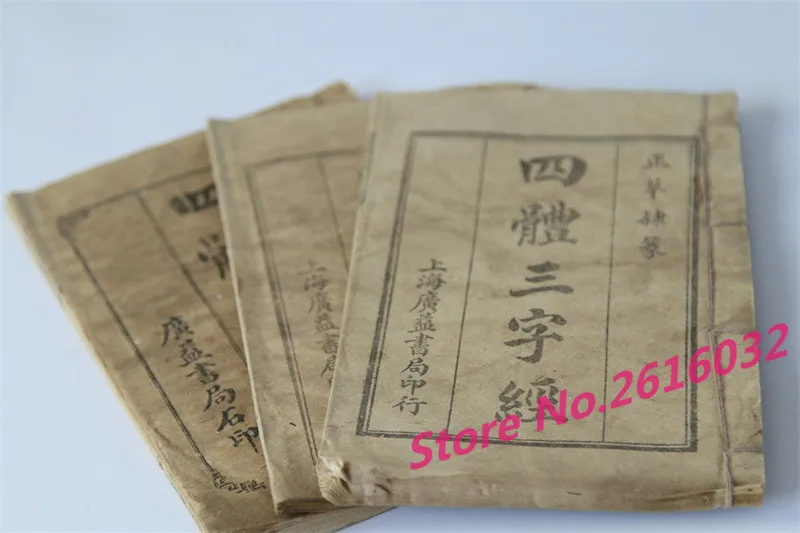 正草隸篆
四體三字經
上海廣益書局印行
上海廣益書局
四體
廣益書局石印
Store No.2616032